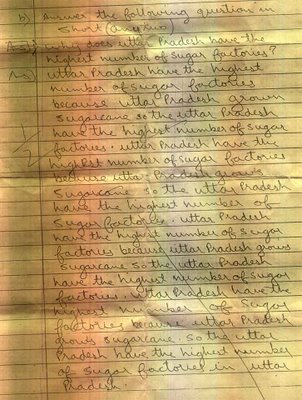 b) Answer the following question in
short (anyone)
Ans) i) why does uttar Pradesh have the
highest number of sugar factories?
Ans) uttar Pradesh have the highest
number of sugar factories
because uttar Pradesh grown
sugarcane so the uttar Pradesh
have the highest number of sugar
factories. uttar Pradesh have the
highest number of sugar factories
because uttar Pradesh grows
Sugarcane so the uttar Pradesh
have the highest number of
sugar factories. uttar Pradesh
have the highest number of sugar
factories because uttar Pradesh grows
sugarcane so the uttar Pradesh
have the highest number of sugar
factories. uttar Pradesh have the
highest number of sugar
factories because uttar Pradesh
grows sugarcane. So the uttar
Pradesh have the highest number
of sugar factories in uttar
Pradesh.